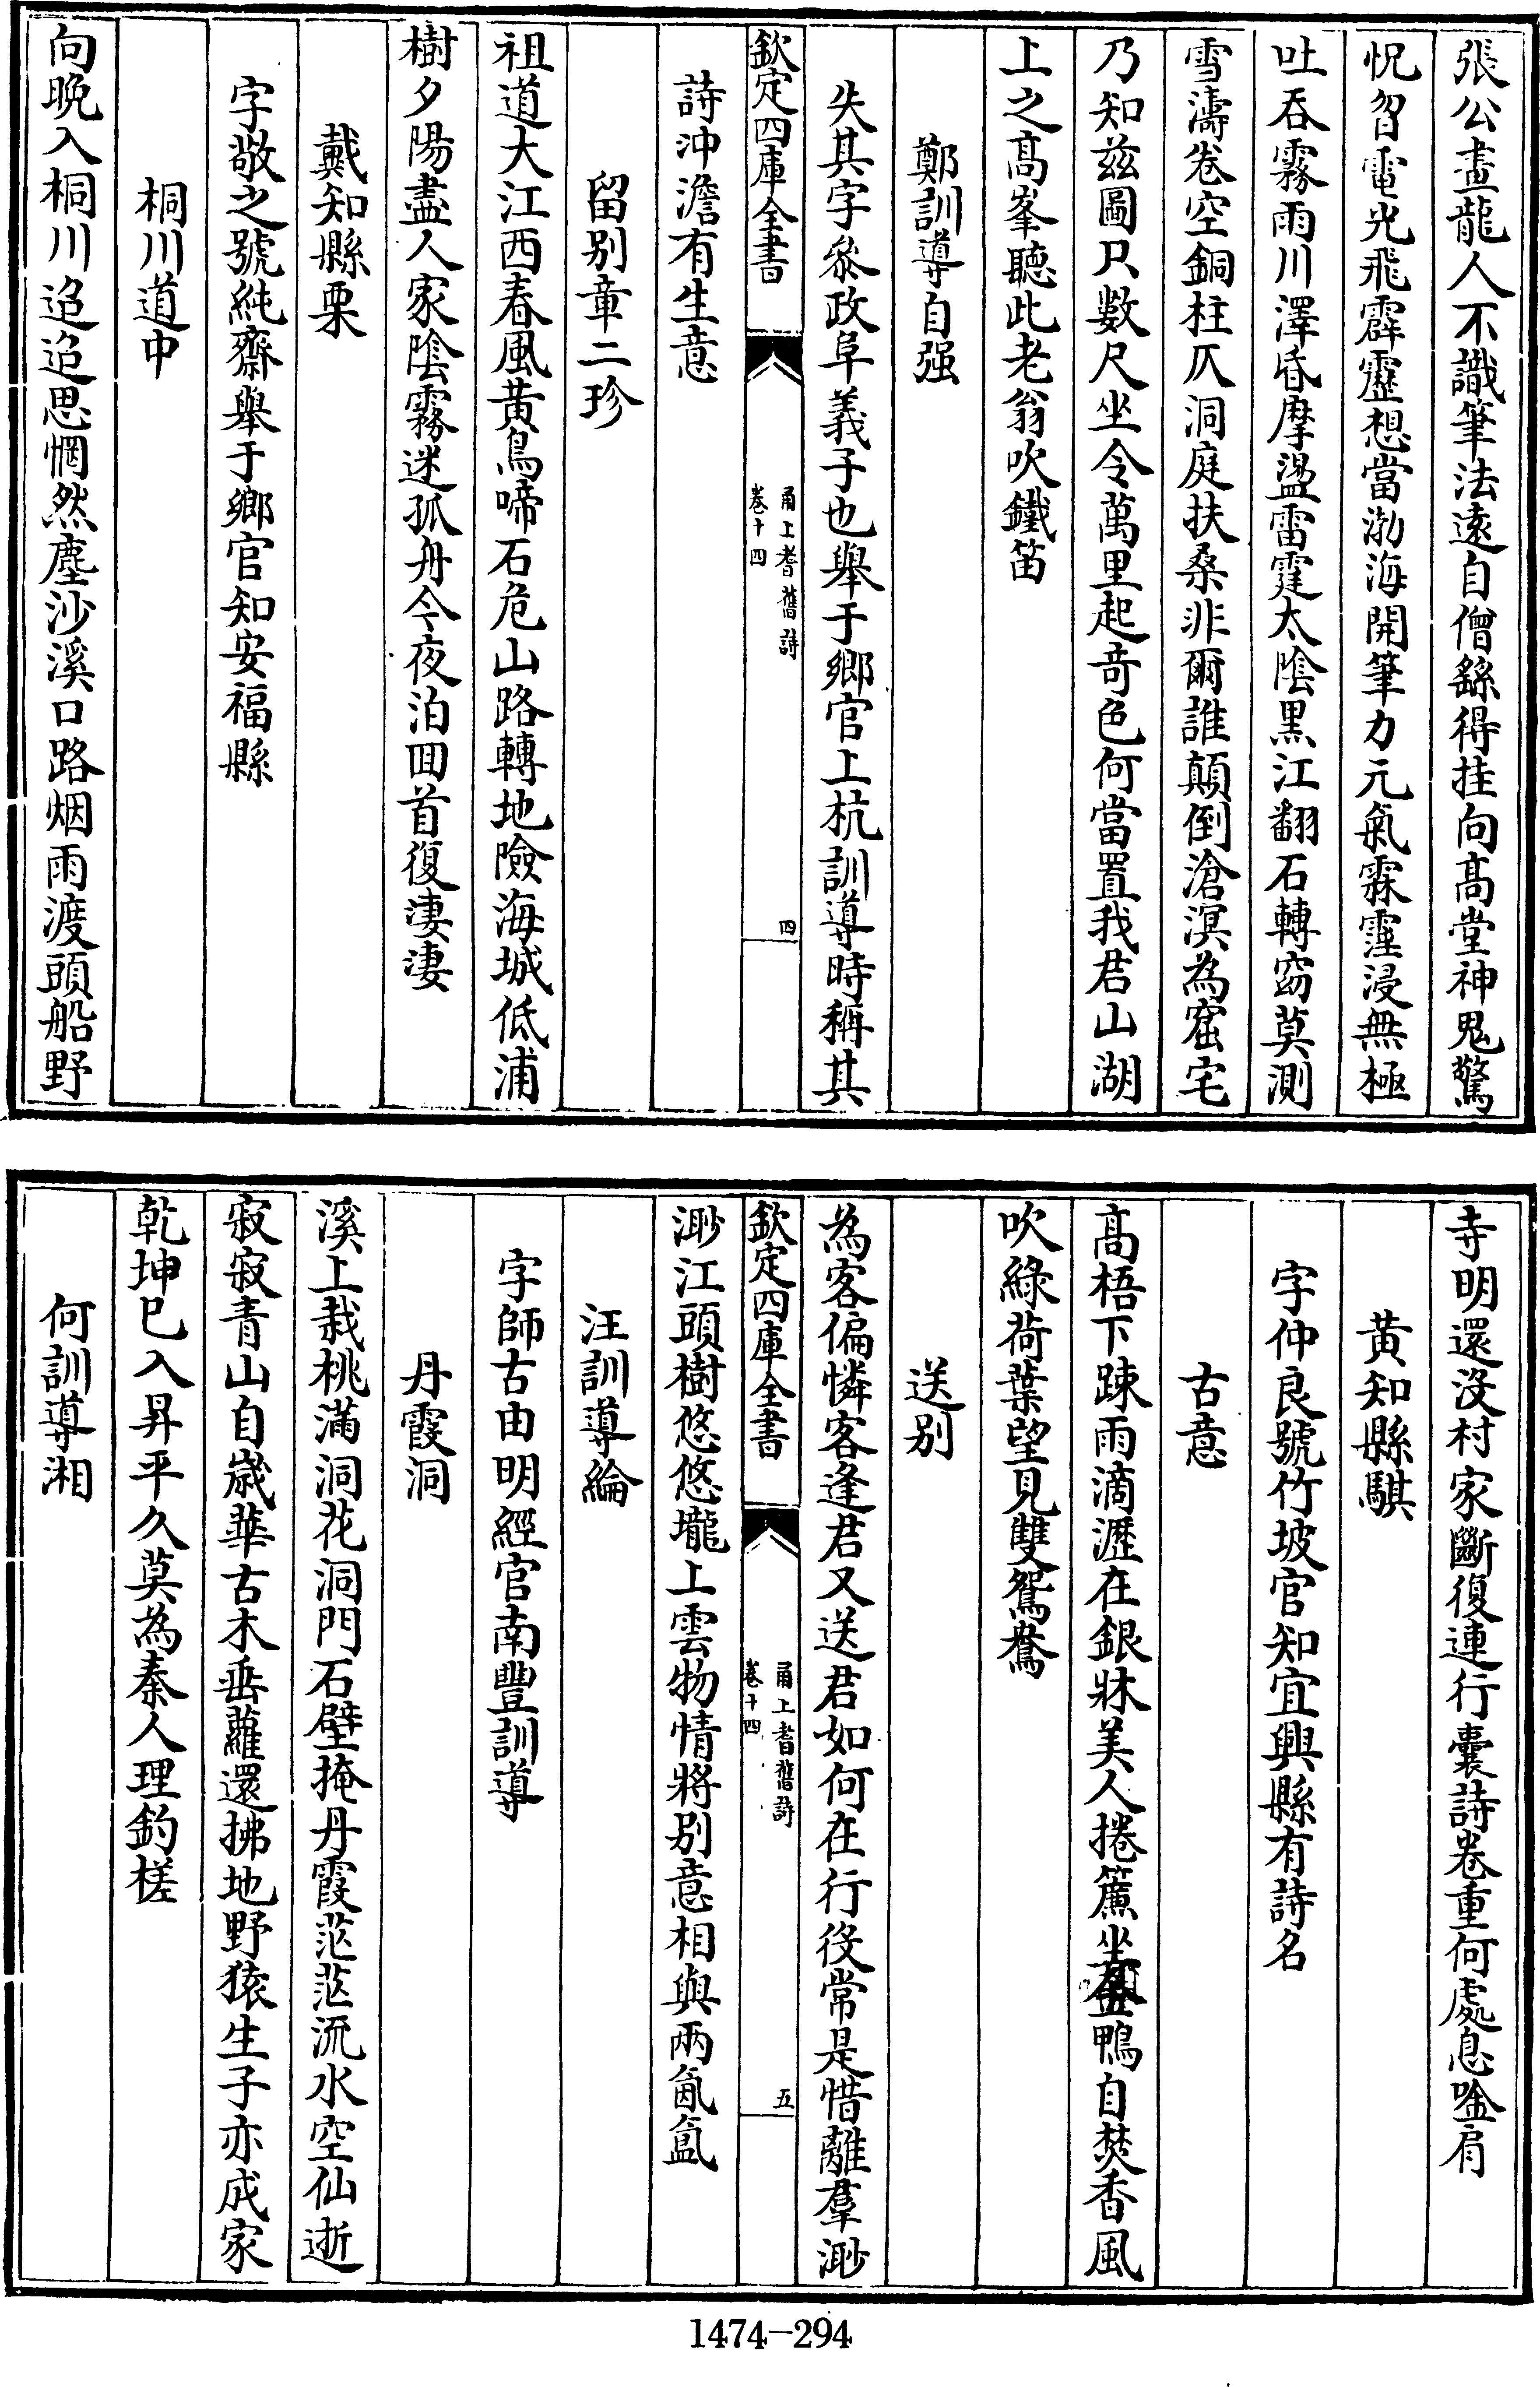 張公畫龍人不識筆法遠自僧繇得挂向髙堂神鬼驚
怳曶電光飛霹靂想當渤海開筆力元氣霖霪浸無極
吐吞霧雨川澤昏摩盪雷霆太隂黒江翻石轉窈莫測
雪濤卷空銅柱仄洞庭扶桑非爾誰顛倒滄溟為窟宅
乃知兹圖只數尺坐令萬里起竒色何當置我君山湖
上之髙峯聽此老翁吹鐵笛
鄭訓導自强
失其字叅政阜義子也舉于鄉官上杭訓導時稱其
欽定四庫全書
甬上耆舊詩
卷十四
四
詩沖澹有生意
留别章二珍
祖道大江西春風黄鳥啼石危山路轉地險海城低浦
樹夕陽盡人家隂霧迷孤舟今夜泊囬首復淒淒
戴知縣栗
字敬之號純齋舉于鄉官知安福縣
桐川道中
向晩入桐川迢迢思惘然塵沙溪口路烟雨渡頭船野
寺明還沒村家斷復連行囊詩卷重何處息唫肩
黄知縣騏
字仲良號竹坡官知宜興縣有詩名
古意
髙梧下踈雨滴瀝在銀牀美人捲簾坐金鴨自焚香風
吹綠荷葉望見雙鴛鴦
送别
為客偏憐客逢君又送君如何在行役常是惜離羣渺
欽定四庫全書
甬上耆舊詩
卷十四
五
渺江頭樹悠悠壠上雲物情將别意相與兩氤氲
汪訓導綸
字師古由明經官南豐訓導
丹霞洞
溪上栽桃滿洞花洞門石壁掩丹霞茫茫流水空仙逝
寂寂青山自嵗華古木垂蘿還拂地野猿生子亦成家
乾坤已入昇平久莫為秦人理釣槎
何訓導湘
1474-294